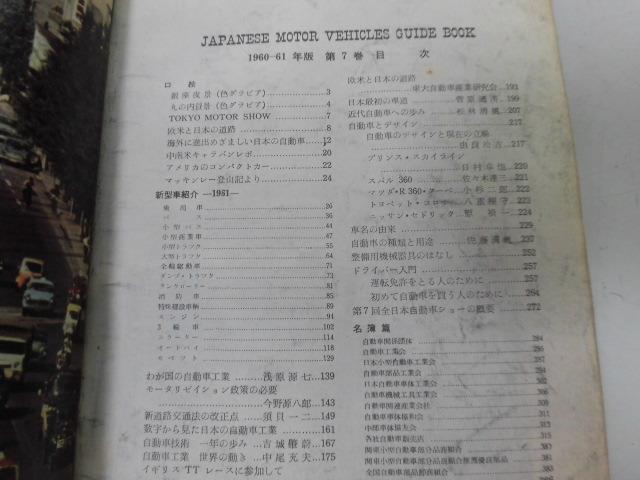 JAPANESE MOTOR VEHICLES GUIDE BOOK
1960-61年版 第7巻 目 次
口 絵
銀座夜景(色グラビア) 3
丸の内夜景(色グラビア) 4
TOKYO MOTOR SHOW 7
欧米と日本の道路 8
海外に進出めざましい日本の自動車 12
中南米キャラバンレポ 20
アメリカのコンパクトカー 22
マッキンレー登山記より 24
新型車紹介 —1961—
乗用車 26
バス 36
小型バス 44
小型商業車 47
小型トラック 55
大型トラック 64
全輪駆動車 71
ダンプ・トラック 73
タンクローリー 81
消防車 85
特殊建設車輌 89
エンジン 94
3輪車 102
スクーター 114
オートバイ 118
モペット 129
わが国の自動車工業 浅原源七 139
モータリゼイション政策の必要
今野源八郎 143
新道路交通法の改正点 須貝一二 149
数字から見た日本の自動車工業 161
自動車技術 一年の歩み 吉城肇蔚 167
自動車工業 世界の動き 中尾充夫 175
イギリスTTレースに参加して
欧米と日本の道路
東大自動車産業研究会 193
日本最初の車道 199
近代自動車への歩み 207
自動車とデザイン 217
自動車のデザインと現在の立場
217
プリンス・スカイライン
220
スバル360 佐々木達三 221
マツダ・R360・クーペ 小杉二郎 222
トヨペット・コロナ 223
ニッサン・セドリック 224
車名の由来 229
自動車の種類と用途 237
整備用機械器具のはなし 252
ドライバー入門 257
運転免許をとる人のために 257
初めて自動車を買う人のために 264
第7回全日本自動車ショーの概要 272
名簿篇
自動車関係団体 284
自動車工業会 286
日本小型自動車工業会
自動車部品工業会
日本自動車車体工業会 302
自動車機械工具工業会 306
自動車関連産業会社 309
自動車車体協和会 311
中部車体協友会 313
各社自動車販売店 315
関東小型自動車部分品商組合
関東小型自動車部分品商組合推奨優良部品
全国自動車部品商組合